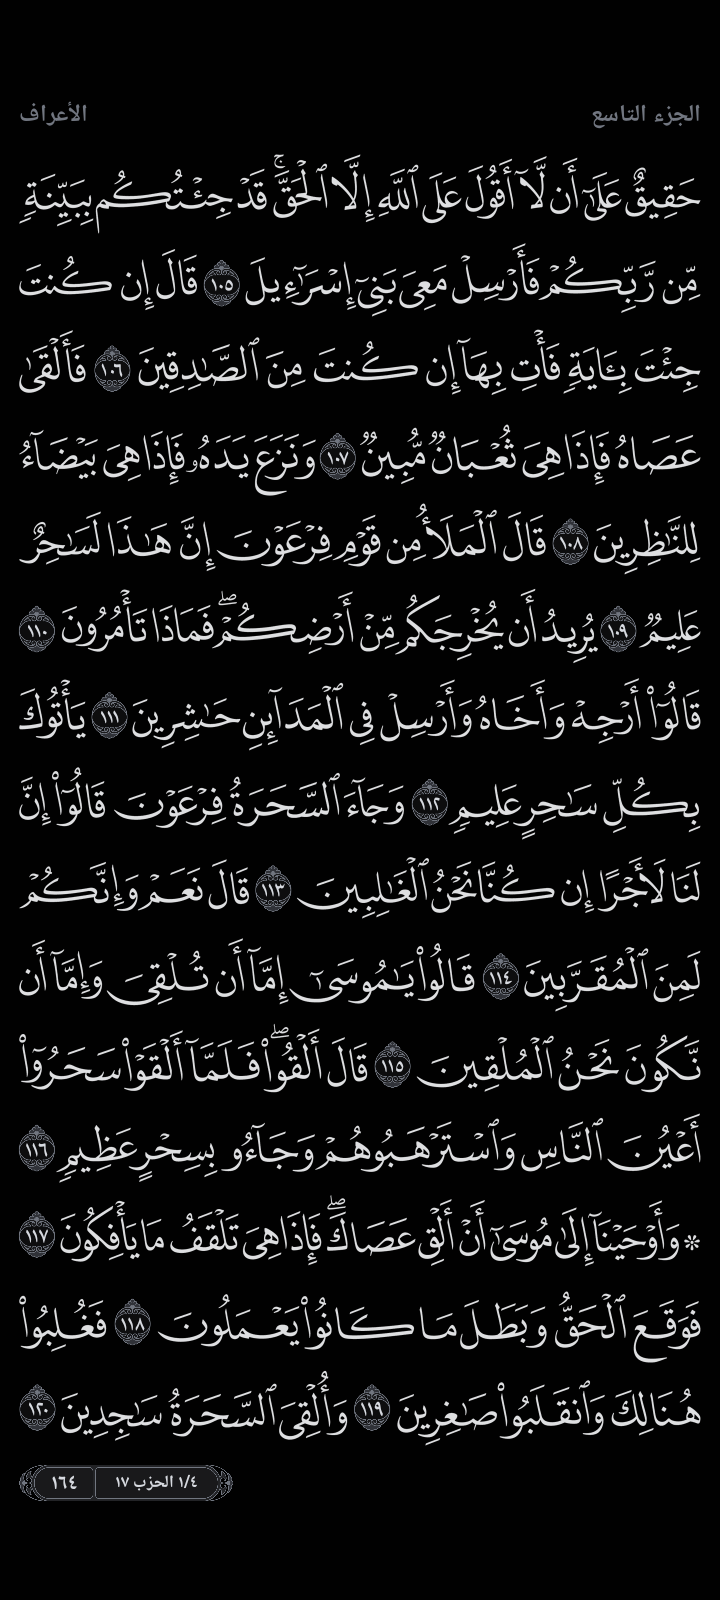 الجزء التاسع
الأعراف
حَقِيقٌ عَلَىٰٓ أَن لَّآ أَقُولَ عَلَى ٱللَّهِ إِلَّا ٱلْحَقَّ ۚ قَدْ جِئْتُكُم بِبَيِّنَةٍ
مِّن رَّبِّكُمْ فَأَرْسِلْ مَعِىَ بَنِىٓ إِسْرَٰٓءِيلَ ١٠٥ قَالَ إِن كُنتَ
جِئْتَ بِـَٔايَةٍ فَأْتِ بِهَآ إِن كُنتَ مِنَ ٱلصَّـٰدِقِينَ ١٠٦ فَأَلْقَىٰ
عَصَاهُ فَإِذَا هِىَ ثُعْبَانٌ مُّبِينٌ ١٠٧ وَنَزَعَ يَدَهُۥ فَإِذَا هِىَ بَيْضَآءُ
لِلنَّـٰظِرِينَ ١٠٨ قَالَ ٱلْمَلَأُ مِن قَوْمِ فِرْعَوْنَ إِنَّ هَـٰذَا لَسَـٰحِرٌ
عَلِيمٌ ١٠٩ يُرِيدُ أَن يُخْرِجَكُم مِّنْ أَرْضِكُمْ ۖ فَمَاذَا تَأْمُرُونَ ١١٠
قَالُوٓا۟ أَرْجِهْ وَأَخَاهُ وَأَرْسِلْ فِى ٱلْمَدَآئِنِ حَـٰشِرِينَ ١١١ يَأْتُوكَ
بِكُلِّ سَـٰحِرٍ عَلِيمٍ ١١٢ وَجَآءَ ٱلسَّحَرَةُ فِرْعَوْنَ قَالُوٓا۟ إِنَّ
لَنَا لَأَجْرًا إِن كُنَّا نَحْنُ ٱلْغَـٰلِبِينَ ١١٣ قَالَ نَعَمْ وَإِنَّكُمْ
لَمِنَ ٱلْمُقَرَّبِينَ ١١٤ قَالُوا۟ يَـٰمُوسَىٰٓ إِمَّآ أَن تُلْقِىَ وَإِمَّآ أَن
نَّكُونَ نَحْنُ ٱلْمُلْقِينَ ١١٥ قَالَ أَلْقُوا۟ ۖ فَلَمَّآ أَلْقَوْا۟ سَحَرُوٓا۟
أَعْيُنَ ٱلنَّاسِ وَٱسْتَرْهَبُوهُمْ وَجَآءُو بِسِحْرٍ عَظِيمٍ ١١٦
۞ وَأَوْحَيْنَآ إِلَىٰ مُوسَىٰٓ أَنْ أَلْقِ عَصَاكَ ۖ فَإِذَا هِىَ تَلْقَفُ مَا يَأْفِكُونَ ١١٧
فَوَقَعَ ٱلْحَقُّ وَبَطَلَ مَا كَانُوا۟ يَعْمَلُونَ ١١٨ فَغُلِبُوا۟
هُنَالِكَ وَٱنقَلَبُوا۟ صَـٰغِرِينَ ١١٩ وَأُلْقِىَ ٱلسَّحَرَةُ سَـٰجِدِينَ ١٢٠
١/٤ الحزب ١٧
١٦٤